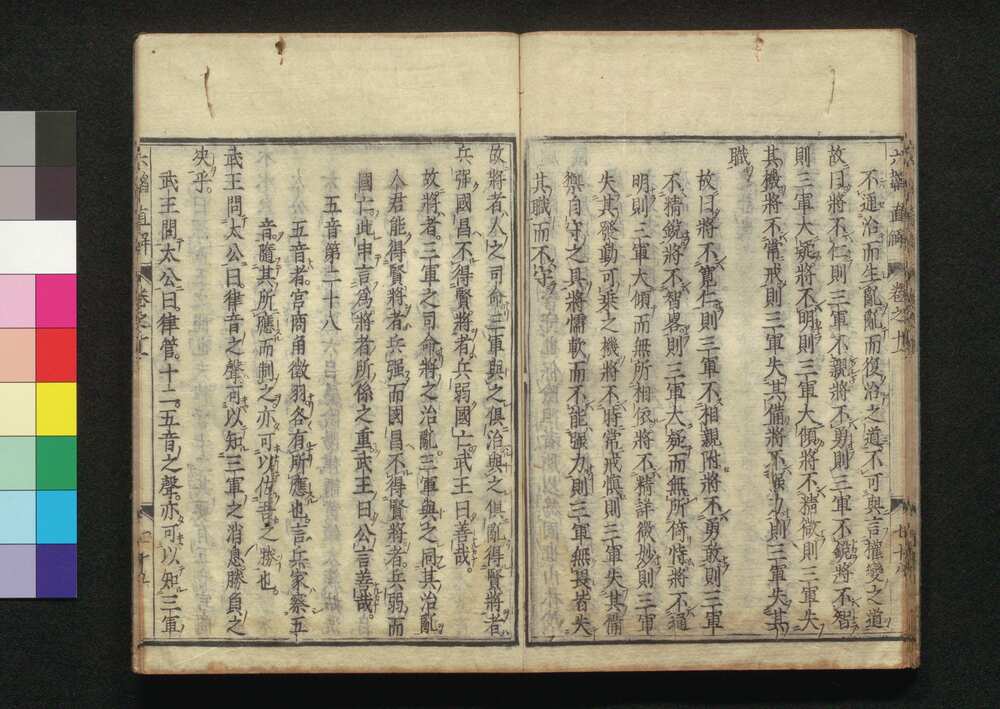 六韜直解 卷之中
不通治而生亂亂而復治之道不可與言權變之道
故曰將不仁則三軍不親將不勇則三軍不銳將不智
則三軍大疑將不明則三軍大傾將不精微則三軍失
其機將不常戒則三軍失其備將不強力則三軍失其
職
故曰將不寬仁則三軍不相親附將不勇敢則三軍
不精銳將不智畧則三軍大疑而無所倚恃將不通
明則三軍大傾而無所相依將不精詳微妙則三軍
失其發動可乘之機將不時常戒慎則三軍失其備
禦自守之具將懦軟而不能強力則三軍無畏皆失
其職而不守
故將者人之司命三軍與之俱治與之俱亂得賢將者
兵强國昌不得賢將者兵弱國亡武王曰善哉
故將者三軍之司命將之治亂三軍與之同其治亂
人君能得賢將者兵强而國昌不得賢將者兵弱而
國亡此申言爲將者所係之重武王曰公言善哉
五音第二十八
五音者宮商角徵羽各有所應也言兵家察五
音隨其所應而制之亦可以佐吾之勝也
武王問太公曰律音之聲可以知三軍之消息勝負之
決乎
武王問太公曰律管十二五音之聲亦可以知三軍
六韜直解